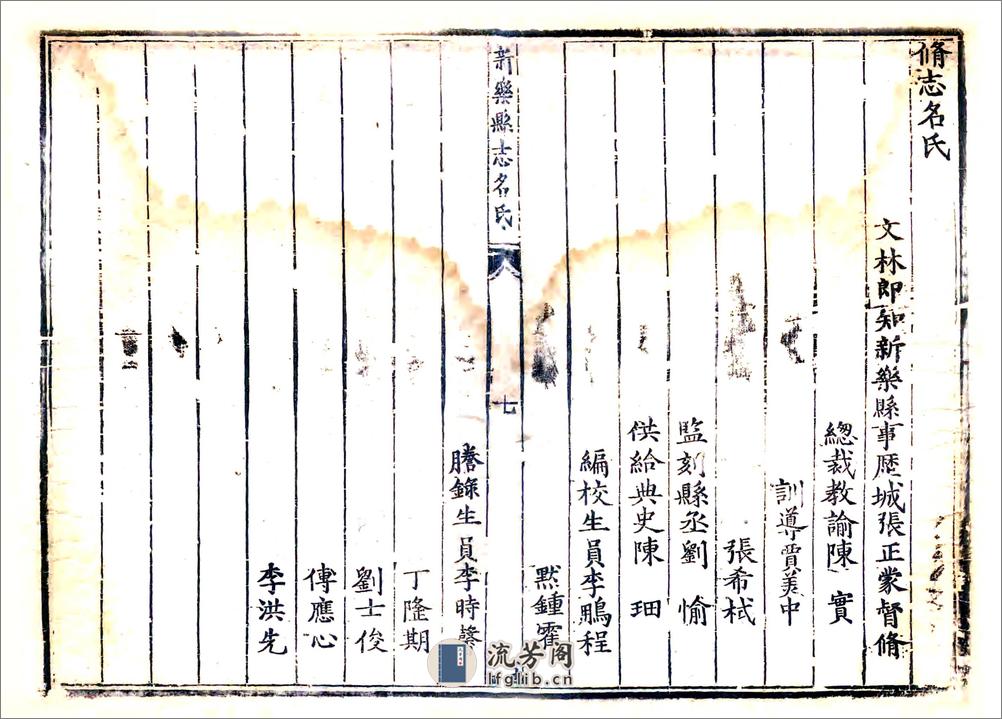 脩志名氏
文林郎知新樂縣事歷城張正蒙督脩
總裁教諭陳實
訓導賈美中
張希栻
監刻縣丞劉愉
供給典史陳𤰞
編校生員李鵬程
熙鍾霍
新樂縣志名氏
七
謄錄生員李時馨
丁隆期
劉士俊
傅應心
李洪先
流芳阁
lfglib.cn